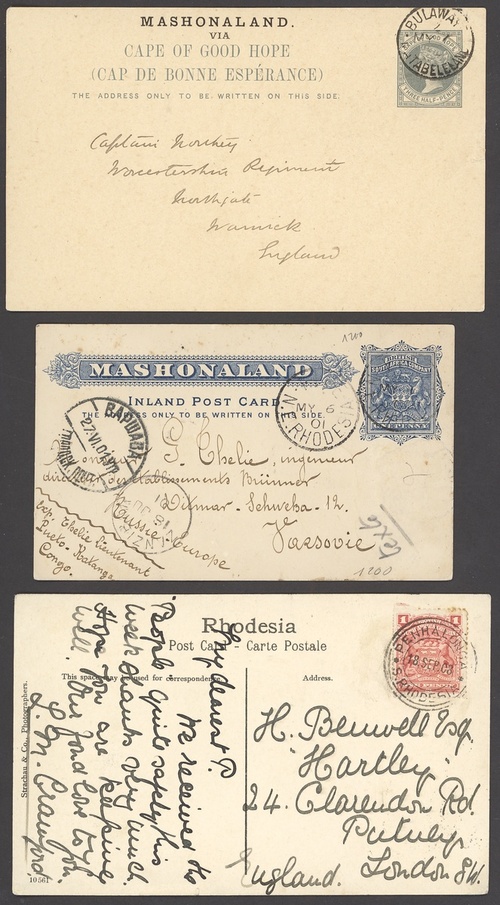 MASHONALAND.
VIA
CAPE OF GOOD HOPE
(CAP DE BONNE ESPÉRANCE)
THE ADDRESS ONLY TO BE WRITTEN ON THIS SIDE.
THREE HALF-PENCE
Captain Northey
Worcestershire Regiment
Northgate
Warwick
England
1200
MASHONALAND
INLAND POST CARD.
THE ADDRESS ONLY TO BE WRITTEN ON THIS SIDE.
BRITISH
SOUTH AFRICA COMPANY
ONE PENNY
MY 6
01
N.E. RHODESIA
ВАРШАВА
27 VI 01
Monsieur G. Thelie, ingenieur
directeur des établissements
Witmar-Schweba-12.
Varsovie
Russie Europe
exp. Thelie Lieutenant
Pueto-Katanga
Congo.
1200
Rhodesia
Post Card - Carte Postale
This space may be used for correspondence
Address.
1
1
PENHALONGA
18 SEP 09
S. RHODESIA
My dearest P.
We received the
People quite safely this
week thanks very much
Hope you are keeping
well. Our fond love to you
L. M. Crawford.
H. Benwell Esq
"Hartley"
24. Clarendon Rd.
Putney
London S.W.
England.
Strachan & Co., Photographers.
10561